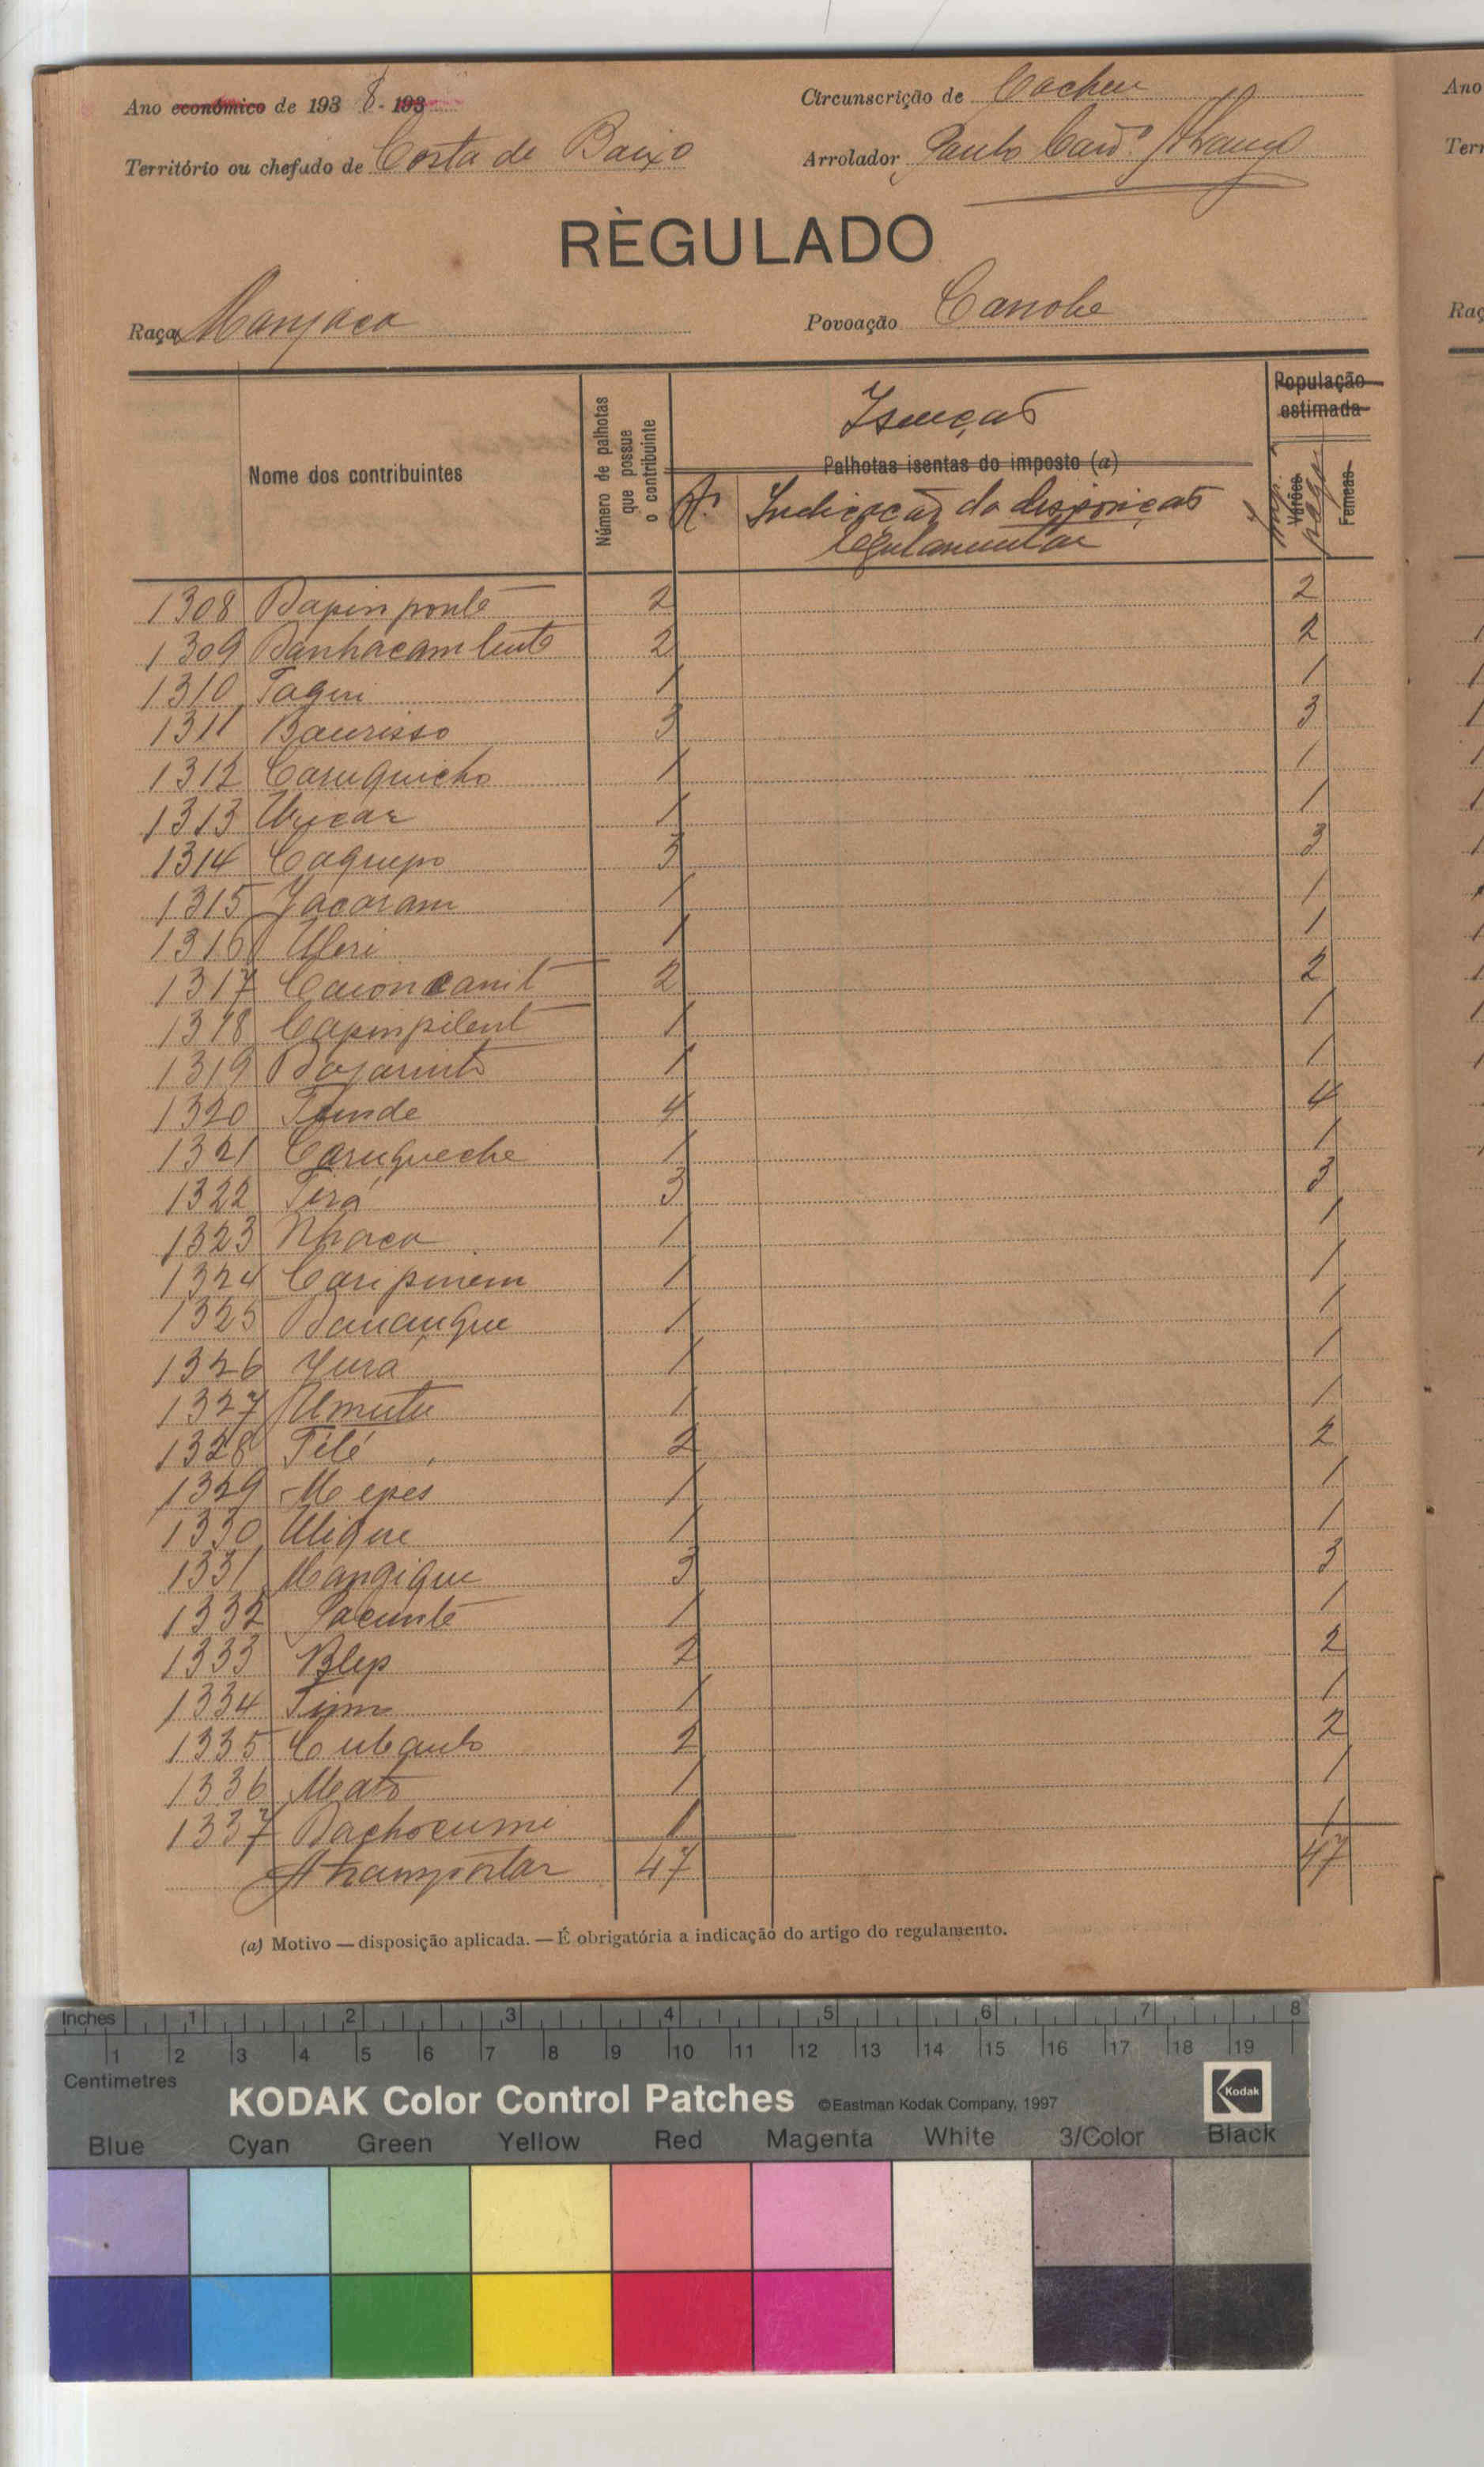 Ano económico de 193 8 - 193
Circunscrição de Cacheu
Território ou chefado de Costa de Baixo
Arrolador Paulo
RÈGULADO
Raça Manjaca
Povoação Canobe
Nome dos contribuintes
Número de palhotas que possue o contribuinte
Isenção
Palhotas isentas do imposto (a)
Indicação da disposição regulamentar
População estimada
Varões
Femeas
1308 2 2
1309 2 2
1310 Taqui 1 1
1311 Baurisso 3 3
1312 Caruquicho 1 1
1313 1 1
1314 Cagrupo 3 3
1315 Jacaram 1 1
1316 Uleri 1 1
1317 2 2
1318 Capinpilent 1 1
1319 1 1
1320 4 4
1321 Carugueche 1 1
1322 Tirá 3 3
1323 Nhaca 1 1
1324 Caripinem 1 1
1325 1 1
1326 Jura 1 1
1327 Umutu 1 1
1328 Télé 2 2
1329 Mepes 1 1
1330 Ulique 1 1
1331 Mangique 3 3
1332 1 1
1333 Blep 2 2
1334 1 1
1335 2 2
1336 Mato 1 1
1337 Bachocumi 1 1
A transportar 47 47
(a) Motivo — disposição aplicada. — É obrigatória a indicação do artigo do regulamento.
Inches 1 2 3 4 5 6 7 8
1 2 3 4 5 6 7 8 9 10 11 12 13 14 15 16 17 18 19
Centimetres
KODAK Color Control Patches ©Eastman Kodak Company, 1997 Kodak
Blue Cyan Green Yellow Red Magenta White 3/Color Black